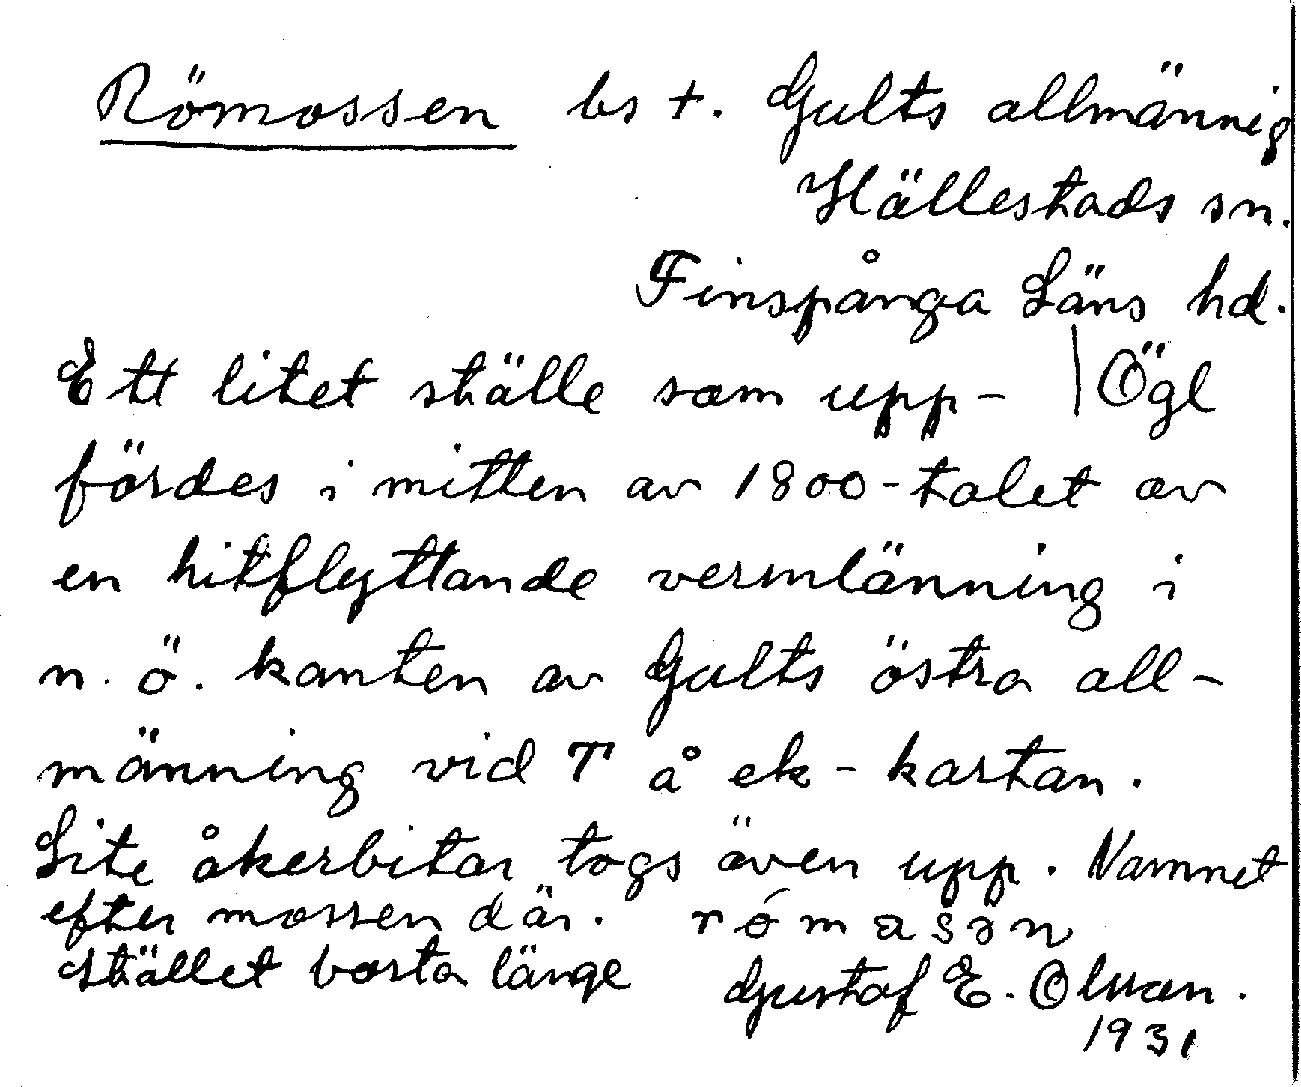 Römossen bs t. Gults allmännig
Hällestads sn.
Finspånga Läns hd.
Ett litet ställe som upp- | Ögl
fördes i mitten av 1800-talet av
en hitflyttande vermlänning i
n. ö. kanten av Gults östra all-
männing vid T å ek-kartan.
Lite åkerbitar togs även upp. Namnet
efter mossen där. rómasən
stället borta länge Gustaf E. Olsson.
1931